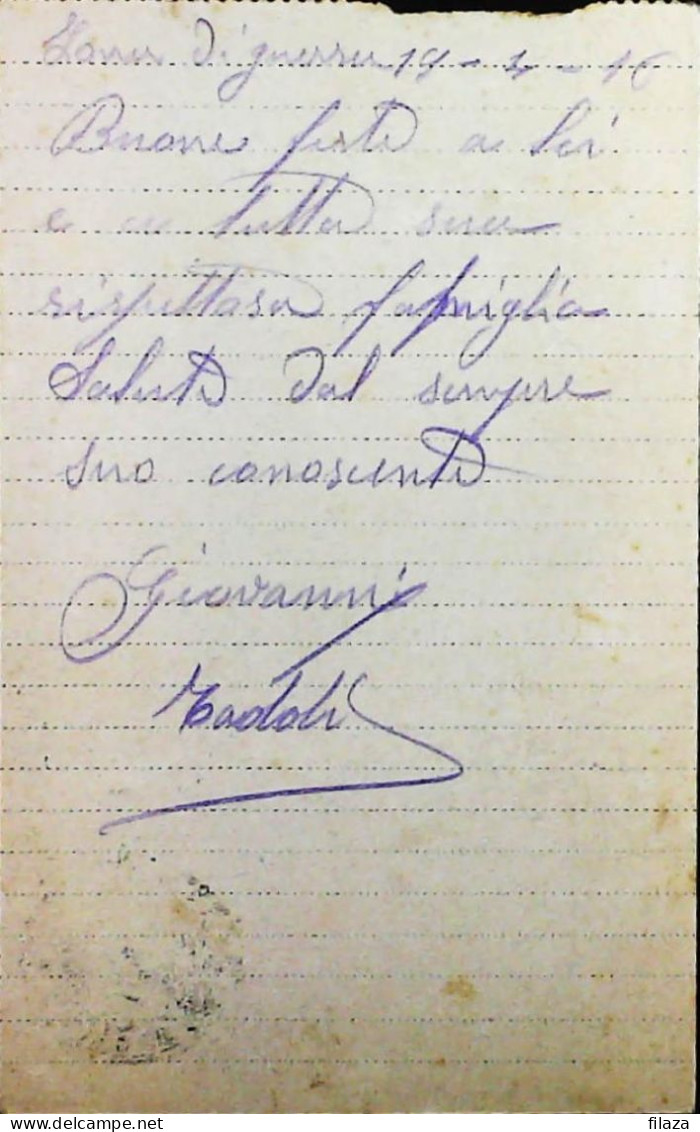 Zona di guerra 19 - 4 - 16
Buone feste a Lei
e a tutta sua
rispettosa famiglia
Saluti dal sempre
suo conoscente
Giovanni
Tadoli
delcampe.net
filaza